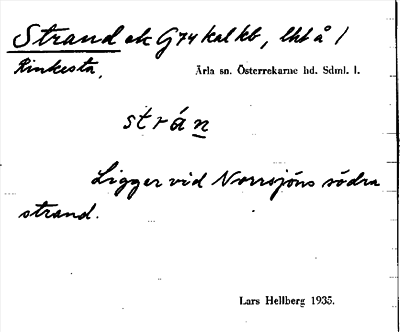 Strand ek G74 kal kb, lht å 1
Rinkesta,
Ärla sn. Österrekarne hd. Sdml. l.
strán
Ligger vid Norrsjöns södra
strand.
Lars Hellberg 1935.